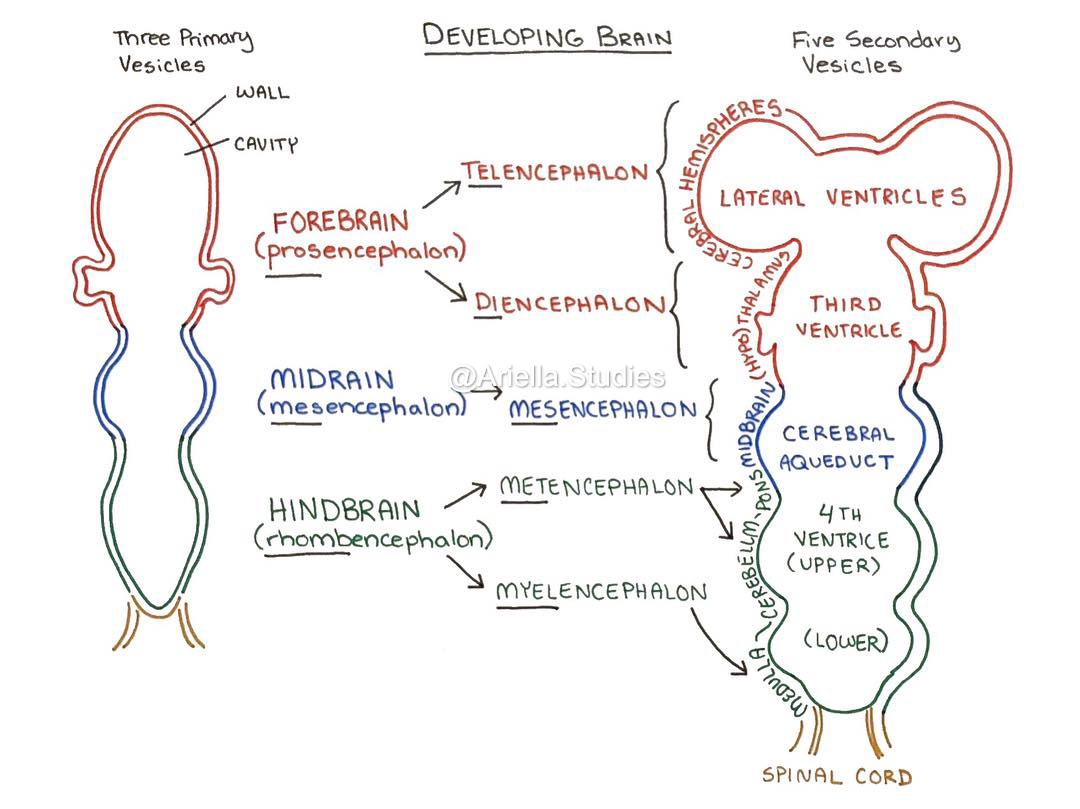 DEVELOPING BRAIN
Three Primary
Vesicles
WALL
CAVITY
FOREBRAIN
(prosencephalon)
MIDRAIN
(mesencephalon)
HINDBRAIN
(rhombencephalon)
TELENCEPHALON
DIENCEPHALON
@Ariella.Studies
MESENCEPHALON
METENCEPHALON
MYELENCEPHALON
Five Secondary
Vesicles
CEREBRAL HEMISPHERES
CEREB
(HYPO)THALAMUS
MIDBRAIN
PONS
CEREBELLM
MEDULLA
LATERAL VENTRICLES
THIRD
VENTRICLE
CEREBRAL
AQUEDUCT
4TH
VENTRICE
(UPPER)
(LOWER)
SPINAL CORD